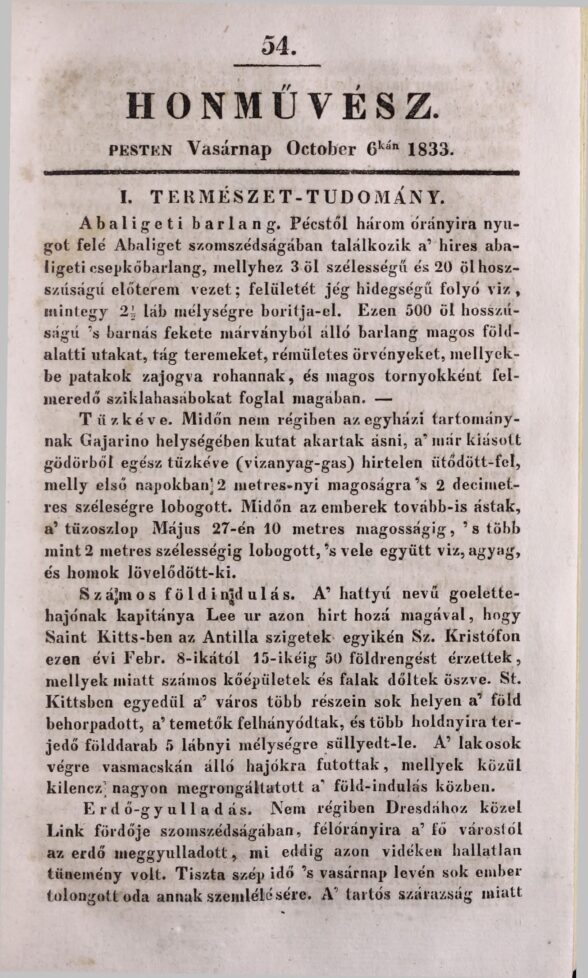 54.
HONMŰVÉSZ.
PESTEN Vasárnap October 6kán 1833.
I. TERMÉSZET-TUDOMÁNY.
Abaligeti barlang. Pécstől három órányira nyu-
got felé Abaliget szomszédságában találkozik a' hires aba-
ligeti csepkőbarlang, mellyhez 3 öl szélességű és 20 öl hosz-
szúságú előterem vezet; felületét jég hidegségű folyó viz,
mintegy 2½ láb mélységre boritja-el. Ezen 500 öl hosszú-
ságú 's barnás fekete márványból álló barlang magos föld-
alatti utakat, tág teremeket, rémületes örvényeket, mellyek-
be patakok zajogva rohannak, és magos tornyokként fel-
meredő sziklahasábokat foglal magában. —
Tűzkéve. Midőn nem régiben az egyházi tartomány-
nak Gajarino helységében kutat akartak ásni, a' már kiásott
gödörből egész tűzkéve (vizanyag-gas) hirtelen ütődött-fel,
melly első napokban 2 metres-nyi magoságra 's 2 decimet-
res szélességre lobogott. Midőn az emberek tovább-is ástak,
a' tüzoszlop Május 27-én 10 metres magosságig, 's több
mint 2 metres szélességig lobogott, 's vele együtt viz, agyag,
és homok lövelődött-ki.
Számos földindulás. A' hattyú nevű goelette-
hajónak kapitánya Lee ur azon hirt hozá magával, hogy
Saint Kitts-ben az Antilla szigetek egyikén Sz. Kristófon
ezen évi Febr. 8-ikától 15-ikéig 50 földrengést érzettek,
mellyek miatt számos kőépületek és falak dőltek öszve. St.
Kittsben egyedül a' város több részein sok helyen a' föld
behorpadott, a' temetők felhányódtak, és több holdnyira ter-
jedő földdarab 5 lábnyi mélységre süllyedt-le. A' lakosok
végre vasmacskán álló hajókra futottak, mellyek közül
kilencz nagyon megrongáltatott a' föld-indulás közben.
Erdő-gyulladás. Nem régiben Dresdához közel
Link fördője szomszédságában, félórányira a' fő várostól
az erdő meggyulladott, mi eddig azon vidéken hallatlan
tünemény volt. Tiszta szép idő 's vasárnap levén sok ember
tolongott oda annak szemlélésére. A' tartós szárazság miatt